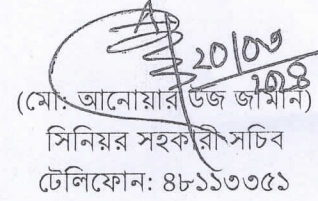 20/03
2024
(মো: আনোয়ার উজ জামান)
সিনিয়র সহকারী সচিব
টেলিফোন: ৪৮১১৩৩৫১